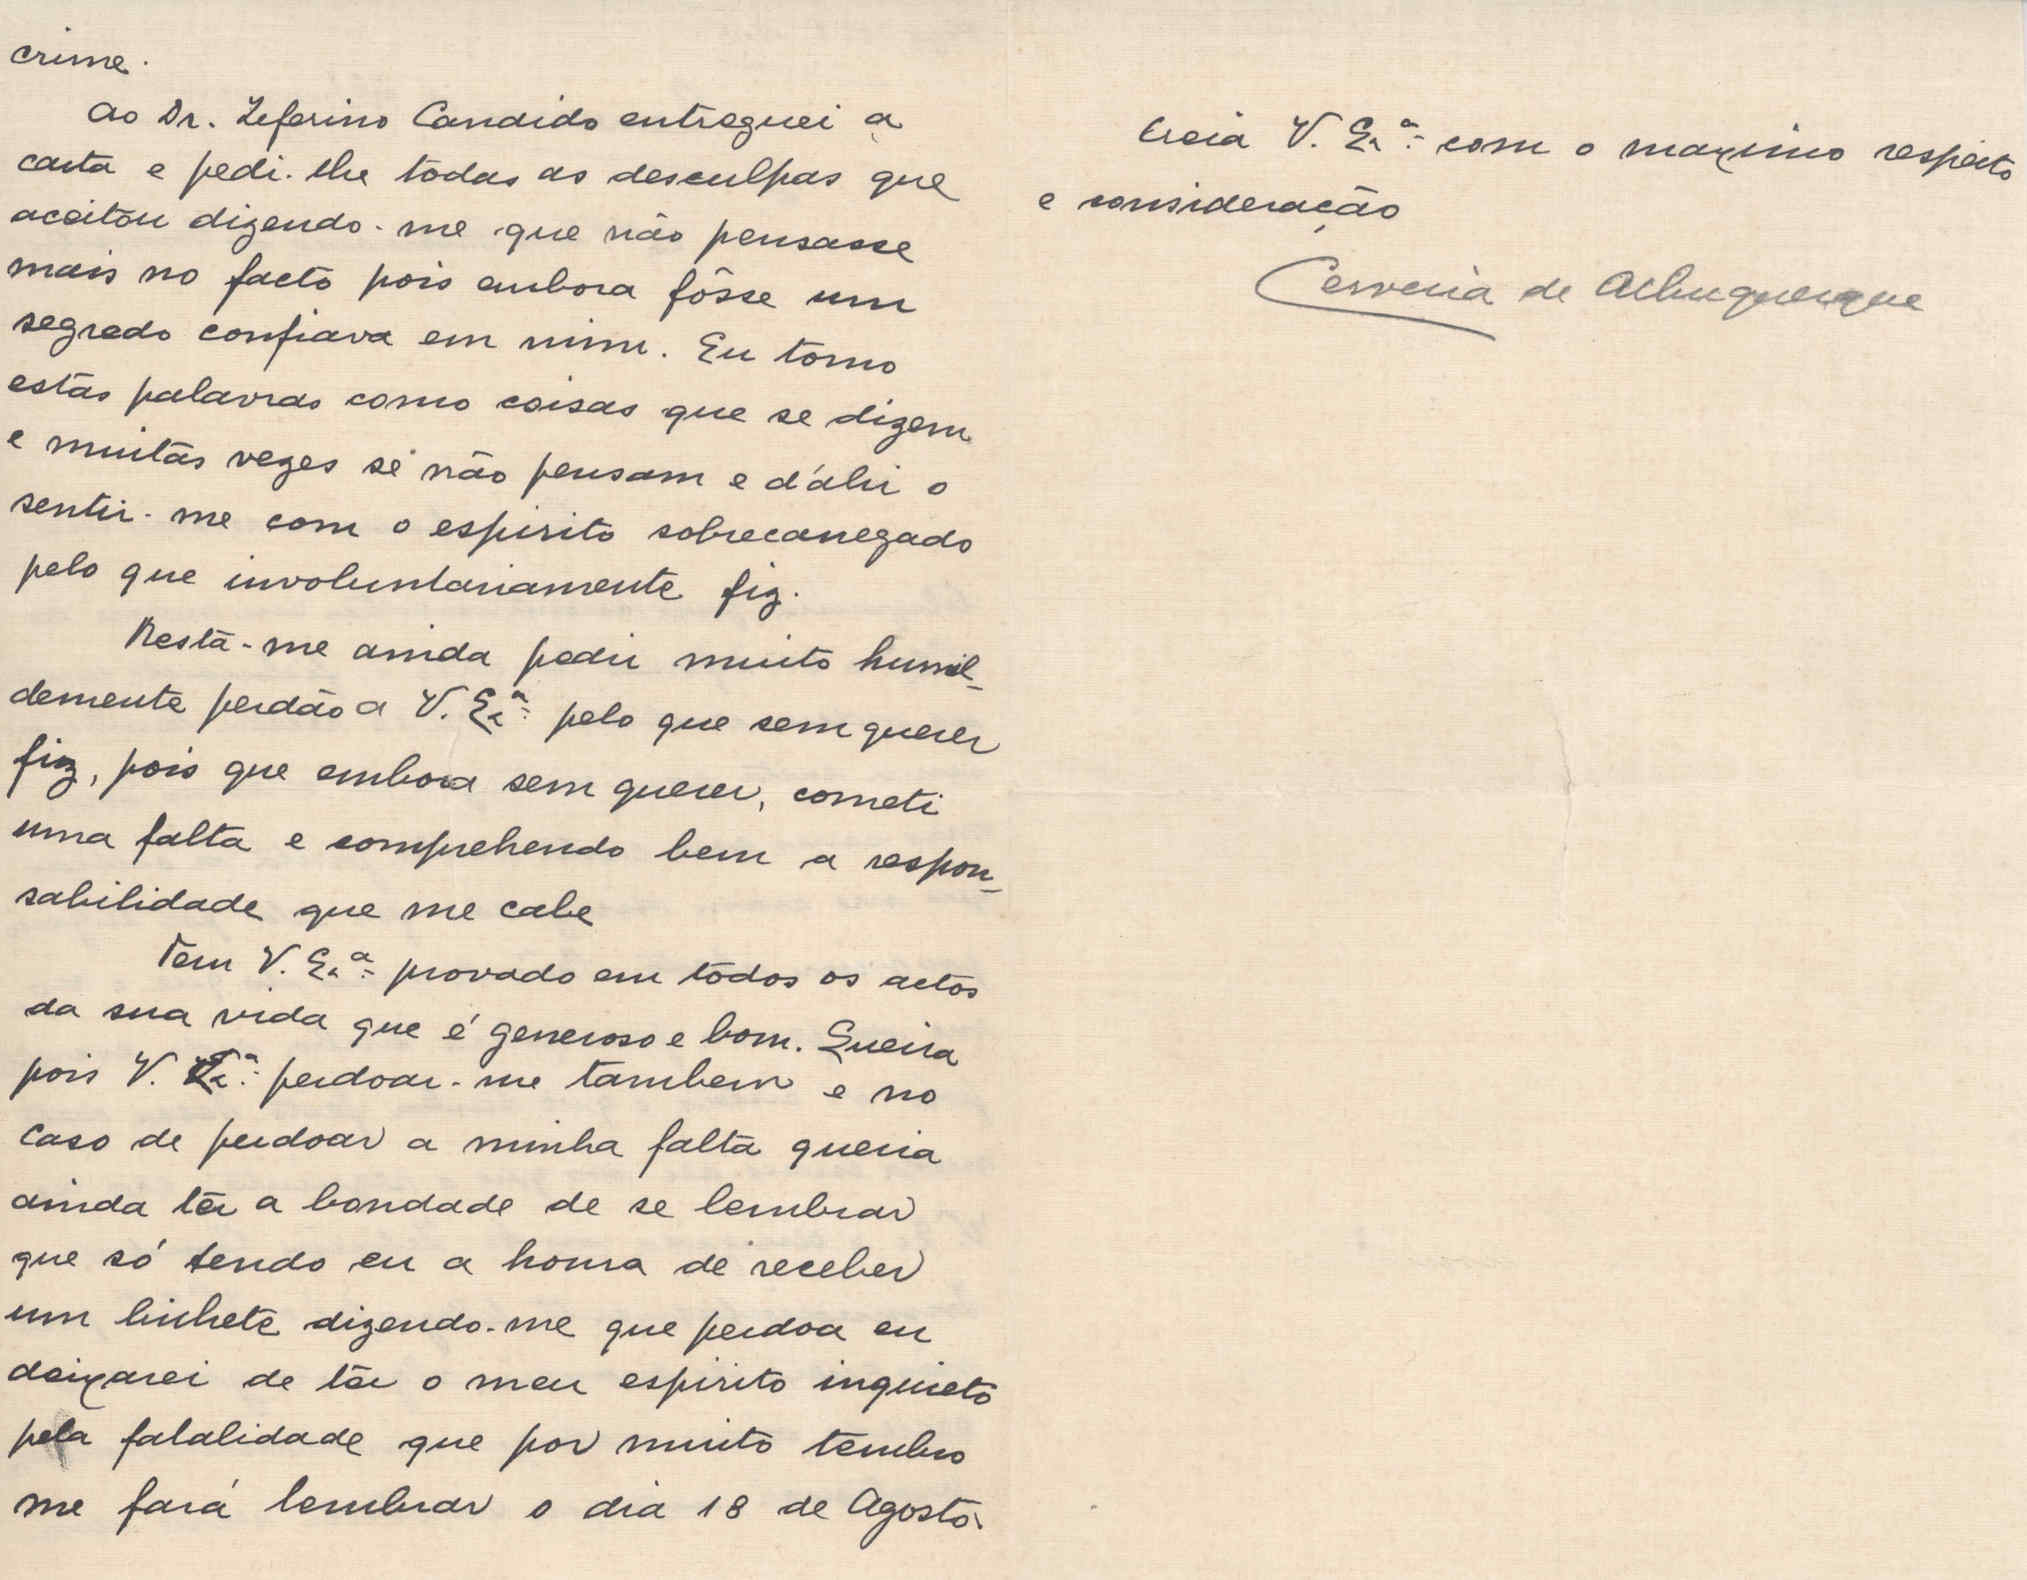 crime.
Ao Dr. Zeferino Candido entreguei a
carta e pedi-lhe todas as desculpas que
aceitou dizendo-me que não pensasse
mais no facto pois embora fôsse um
segredo confiava em mim. Eu tomo
estas palavras como coisas que se dizem
e muitas vezes se não pensam e d'ahi o
sentir-me com o espirito sobrecarregado
pelo que involuntariamente fiz.
Resta-me ainda pedir muito humil-
demente perdão a V. Exª: pelo que sem querer
fiz, pois que embora sem querer, cometi
uma falta e comprehendo bem a respon-
sabilidade que me cabe
Tem V. Exª: provado em todos os actos
da sua vida que é generoso e bom. Queira
pois V. Exª: perdoar-me tambem e no
caso de perdoar a minha falta queria
ainda têr a bondade de se lembrar
que só tendo eu a honra de receber
um bilhete dizendo-me que perdoa eu
deixarei de têr o meu espirito inquieto
pela fatalidade que por muito tembro
me fará lembrar o dia 18 de Agosto.
Creia V. Exª: com o maximo respeito
e consideração
Cerveira de Albuquerque